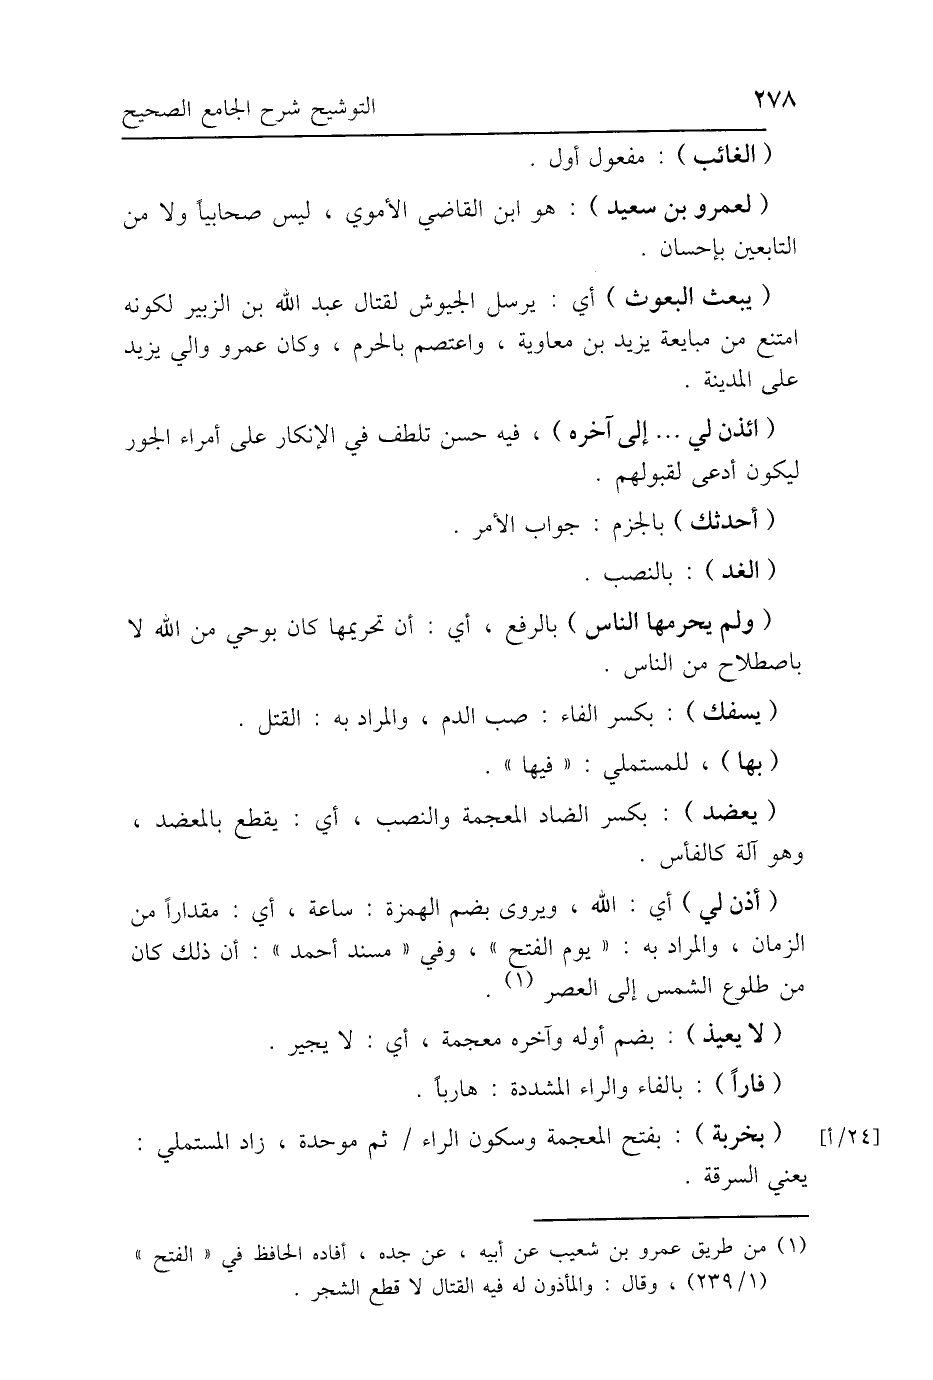 ٢٧٨
التوشيح شرح الجامع الصحيح
( الغائب ) : مفعول أول .
( لعمرو بن سعيد ) : هو ابن القاضي الأموي ، ليس صحابياً ولا من
التابعين بإحسان .
( يبعث البعوث ) أي : يرسل الجيوش لقتال عبد الله بن الزبير لكونه
امتنع من مبايعة يزيد بن معاوية ، واعتصم بالحرم ، وكان عمرو والي يزيد
على المدينة .
( ائذن لي ... إلى آخره ) ، فيه حسن تلطف في الإنكار على أمراء الجور
ليكون أدعى لقبولهم .
( أحدثك ) بالجزم : جواب الأمر .
( الغد ) : بالنصب .
( ولم يحرمها الناس ) بالرفع ، أي : أن تحريمها كان بوحي من الله لا
باصطلاح من الناس .
( يسفك ) : بكسر الفاء : صب الدم ، والمراد به : القتل .
( بها ) ، للمستملي : « فيها » .
( يعضد ) : بكسر الضاد المعجمة والنصب ، أي : يقطع بالمعضد ،
وهو آلة كالفأس .
( أذن لي ) أي : الله ، ويروى بضم الهمزة : ساعة ، أي : مقداراً من
الزمان ، والمراد به : « يوم الفتح » ، وفي « مسند أحمد » : أن ذلك كان
من طلوع الشمس إلى العصر (١) .
( لا يعيذ ) : بضم أوله وآخره معجمة ، أي : لا يجير .
( فاراً ) : بالفاء والراء المشددة : هارباً .
[٢٤/أ] ( بخربة ) : بفتح المعجمة وسكون الراء / ثم موحدة ، زاد المستملي :
يعني السرقة .
(١) من طريق عمرو بن شعيب عن أبيه ، عن جده ، أفاده الحافظ في « الفتح »
(٢٣٩/١) ، وقال : والمأذون له فيه القتال لا قطع الشجر .